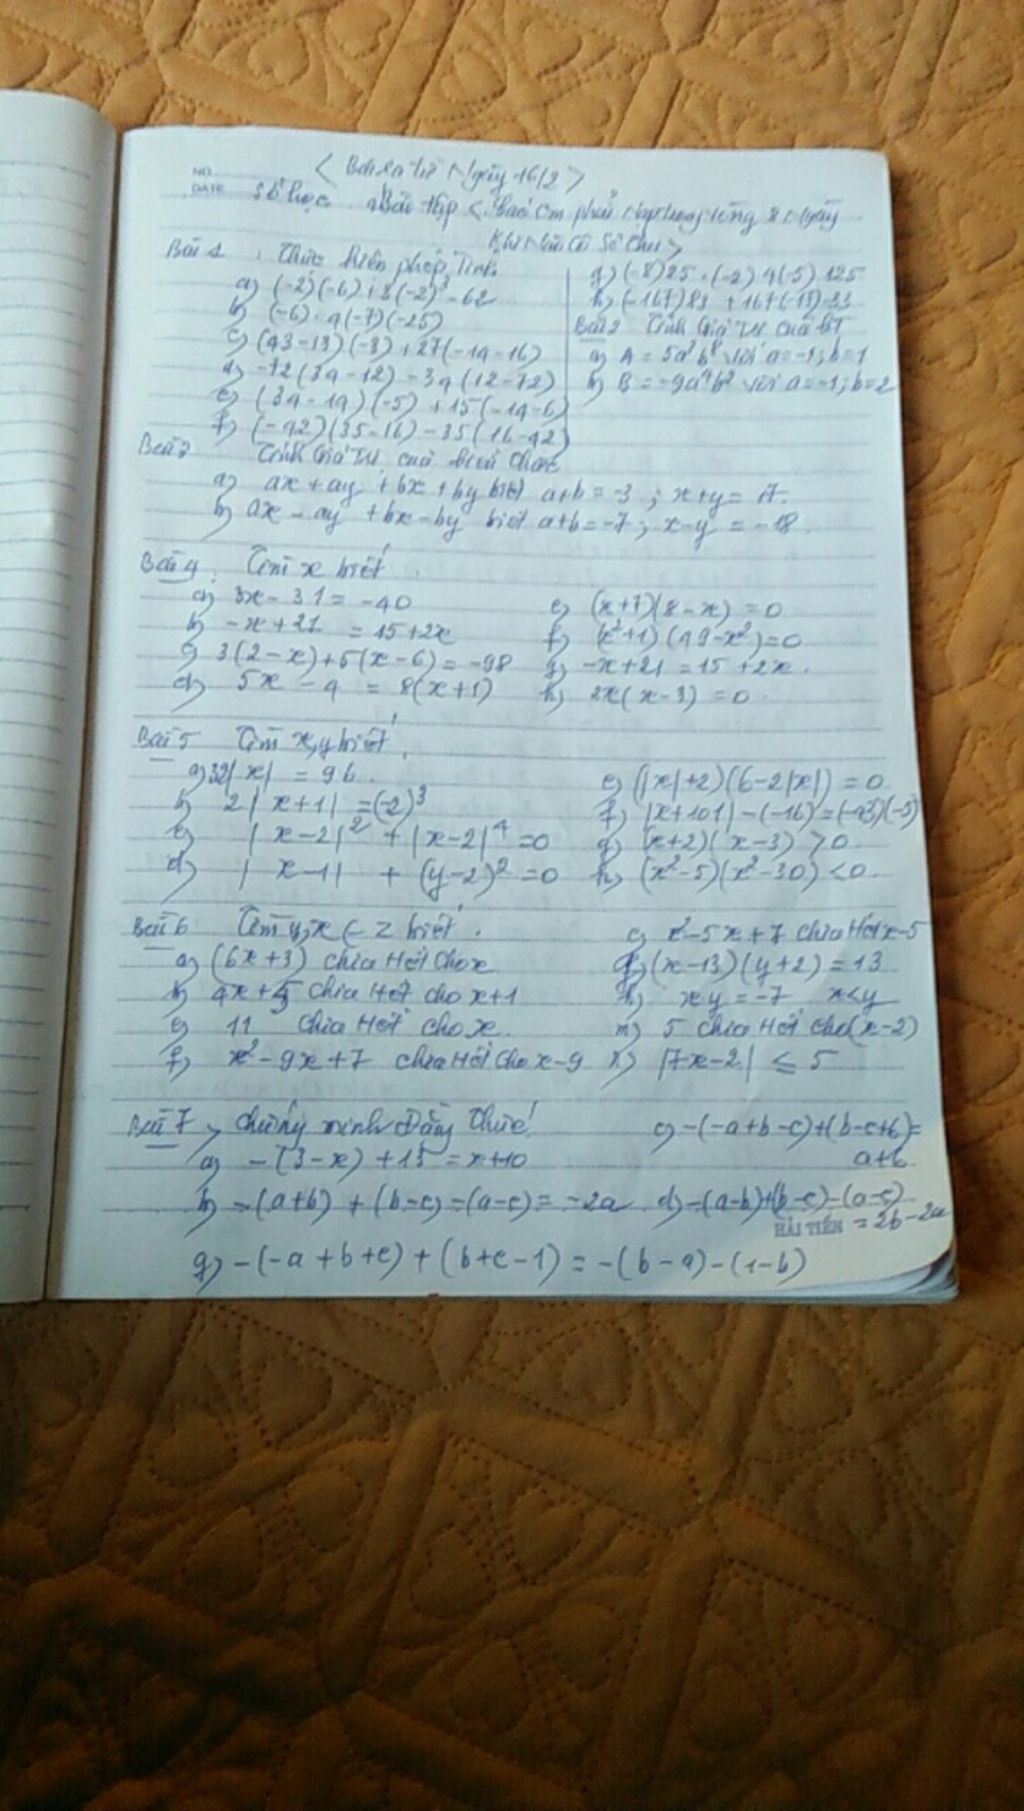 NO.
DATE
< Bài ra từ Ngày 16/2 >
Số học Bài tập < Sao Em phải Nạp trong vòng 8 Ngày
Khi Nào Cô Sẽ Thu >
Bài 1. Thực hiện phép Tính
a) (-2)(-6) + 3(-2)³ - 62
b) (-6) . 4(-7)(-25)
c) (43-13)(-3) + 27(-14-16)
d) -72(34-12) - 34(12-72)
e) (34-14)(-5) + 15(-14-6)
f) (-42)(35-16) - 35(16-42)
g) (-8)25.(-2)4(-5)125
h) (-167)83 + 167(-17)-33
Bài 2 Tính Giá Trị của BT
a) A = 5a³b⁸ với a=-1; b=1
b) B = -9a⁴b² với a=-1; b=2
Bài 3 Tính Giá Trị của biểu thức
a) ax + ay + bx + by biết a+b = -3; x+y = 17.
b) ax - ay + bx - by biết a+b = -7; x-y = -18.
Bài 4. Tìm x biết
a) 3x - 31 = -40
b) -x + 21 = 15 + 2x
c) 3(2-x) + 5(x-6) = -98
d) 5x - 4 = 8(x+1)
e) (x+7)(8-x) = 0
f) (x²+1)(49-x²) = 0
g) -x + 21 = 15 + 2x.
h) 2x(x-3) = 0.
Bài 5 Tìm x,y biết
a) 32|x| = 96.
b) 2|x+1| = (-2)³
c) |x-2|² + |x-2|⁴ = 0
d) |x-1| + (y-2)² = 0
e) (|x|+2)(6-2|x|) = 0.
f) |x+101| - (-16) = (-43)(-5)
g) (x+2)(x-3) > 0.
h) (x²-5)(x²-30) < 0.
Bài 6 Tìm y,x ∈ Z biết.
a) (6x+3) chia Hết cho x
b) 4x+5 chia Hết cho x+1
c) 11 chia Hết cho x.
f) x²-9x+7 chia Hết cho x-9
c) x²-5x+7 chia Hết x-5
g) (x-13)(y+2) = 13
h) xy = -7 x<y
m) 5 chia Hết cho (x-2)
n) |7x-2| ≤ 5
Bài 7 chứng minh Đẳng Thức!
a) -(3-x) + 13 = x+10
b) -(a+b) + (b-c) - (a-c) = -2a
c) -(-a+b-c) + (b-c+6) =
a+6.
d) -(a-b) + (b-c) - (a-c)
= 2b - 2a
HẢI TIẾN
g) -(-a+b+c) + (b+c-1) = -(b-a) - (1-b)